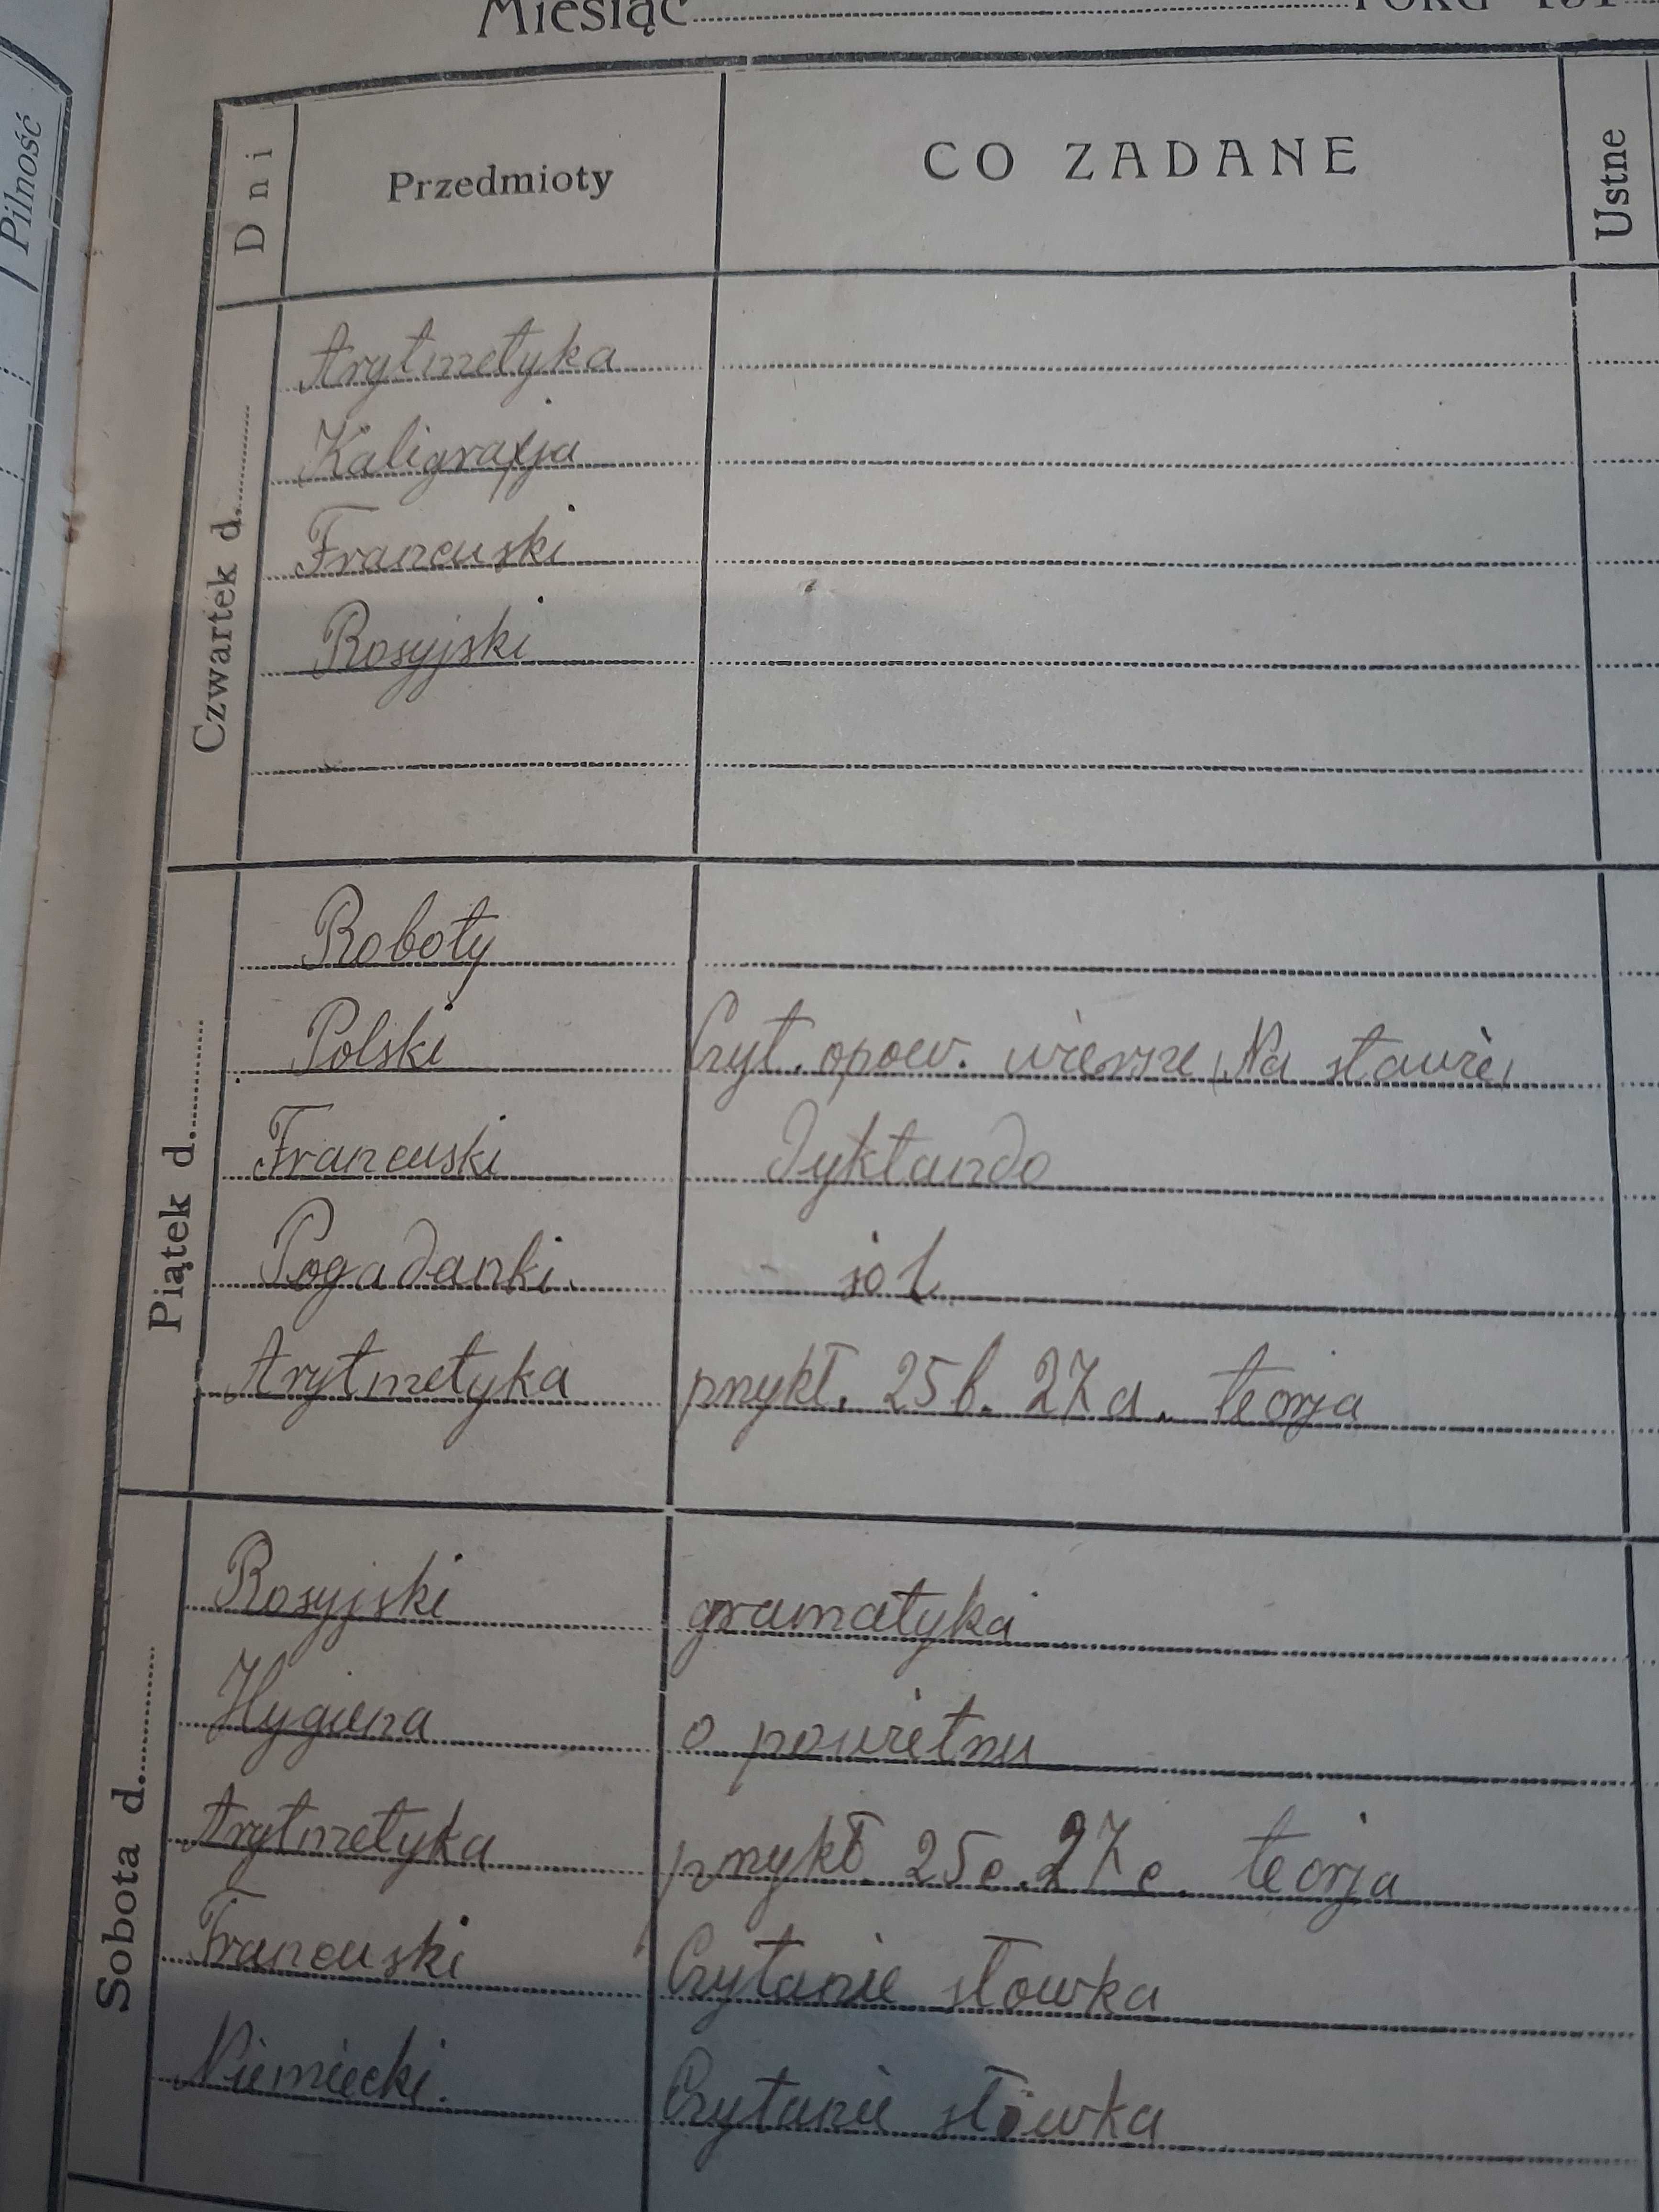 Pilność
Miesiąc
Dni Przedmioty CO ZADANE Ustne
Czwartek d.
Arytmetyka
Kaligrafja
Francuski
Rosyjski
Piątek d.
Roboty
Polski Czyt. opow. wiersze (Na stawie)
Francuski Dyktando
Pogadanki. sól
Arytmetyka przykł. 25 b. 27 a. teorja
Sobota d.
Rosyjski gramatyka
Hygiena o powietrzu
Arytmetyka przykł. 25 c. 27 c. teorja
Francuski Czytanie słowka
Niemiecki. Czytanie słówka